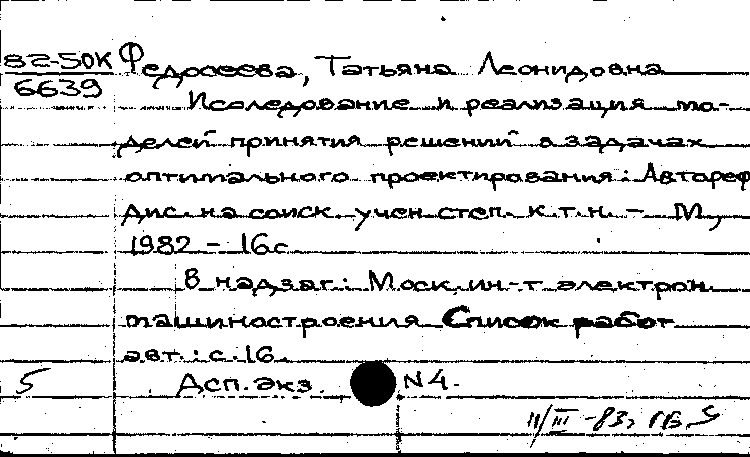 82-50К Федосеева, Татьяна Леонидовна
6639
Исследование и реализация мо-
делей принятия решений в задачах
оптимального проектирования: Автореф
дис. на соиск. учен. степ. к.т.н. - М,
1982 - 16 с.
В надзаг.: Моск. ин-т электрон.
машиностроения Список работ
авт.: с. 16.
5 Дсп. экз. N 4.
11/III-83г